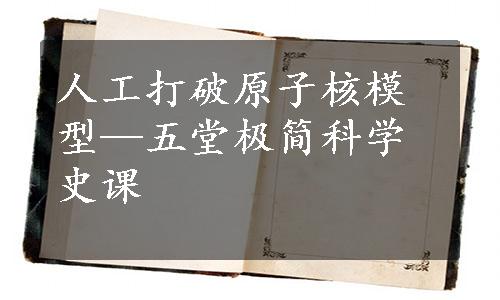 人工打破原子核模
型—五堂极简科学
史课